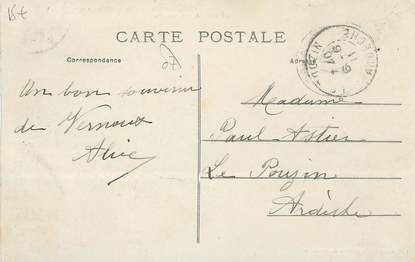 CARTE POSTALE
Correspondance
Un bon souvenir
de Vernoux
Alice
Madame
Paul Astier
Le Pouzin
Ardèche
ARDÈCHE